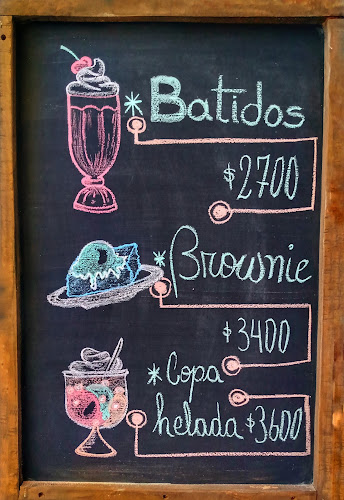 * Batidos
$2700
* Brownie
$3400
* Copa
helada $3600